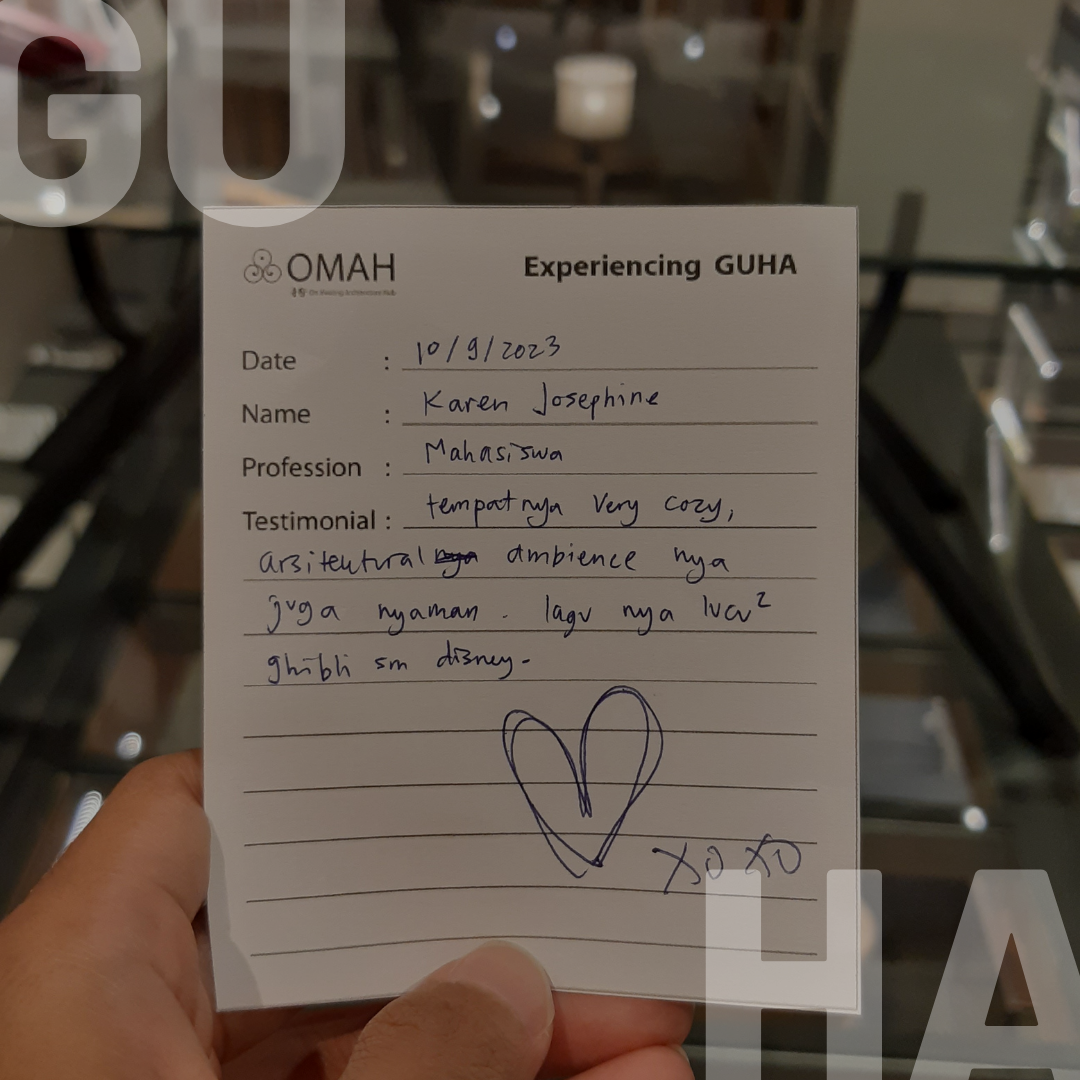 GU
OMAH
Experiencing GUHA
Date : 10/9/2023
Name : Karen Josephine
Profession : Mahasiswa
Testimonial : tempatnya very cozy,
arsitektural nya ambience nya
juga nyaman. lagu nya lucu²
ghibli sm disney.
XOXO
HA